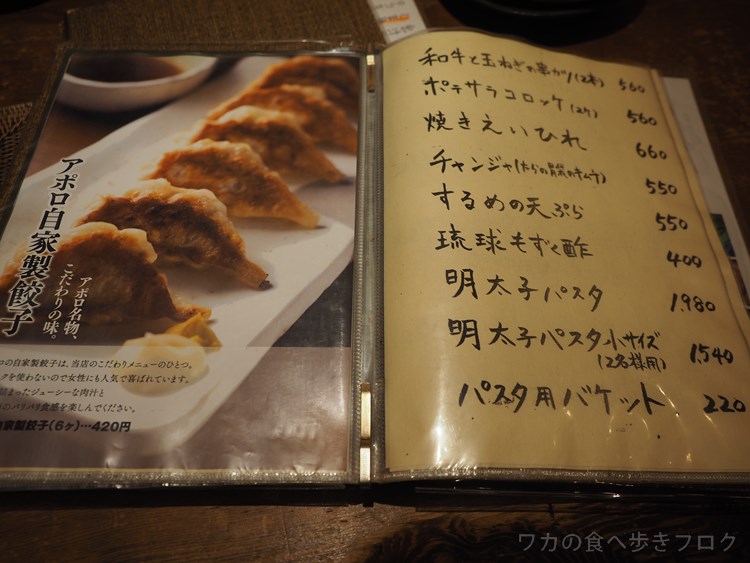 アポロ自家製餃子
アポロ名物、
こだわりの味。
の自家製餃子は、当店のこだわりメニューのひとつ。
クを使わないので女性にも人気で喜ばれています。
詰まったジューシーな肉汁と
のパリパリ食感を楽しんでください。
自家製餃子(6ヶ)…420円
和牛と玉ねぎの串カツ(2本) 560
ポテサラコロッケ(2ケ) 560
焼きえいひれ 660
チャンジャ(たらの内臓のキムチ) 550
するめの天ぷら 550
琉球もずく酢 400
明太子パスタ 1,980
明太子パスタ小サイズ
(1~2名様用) 1,540
パスタ用バケット 220
ワカの食べ歩きブログ